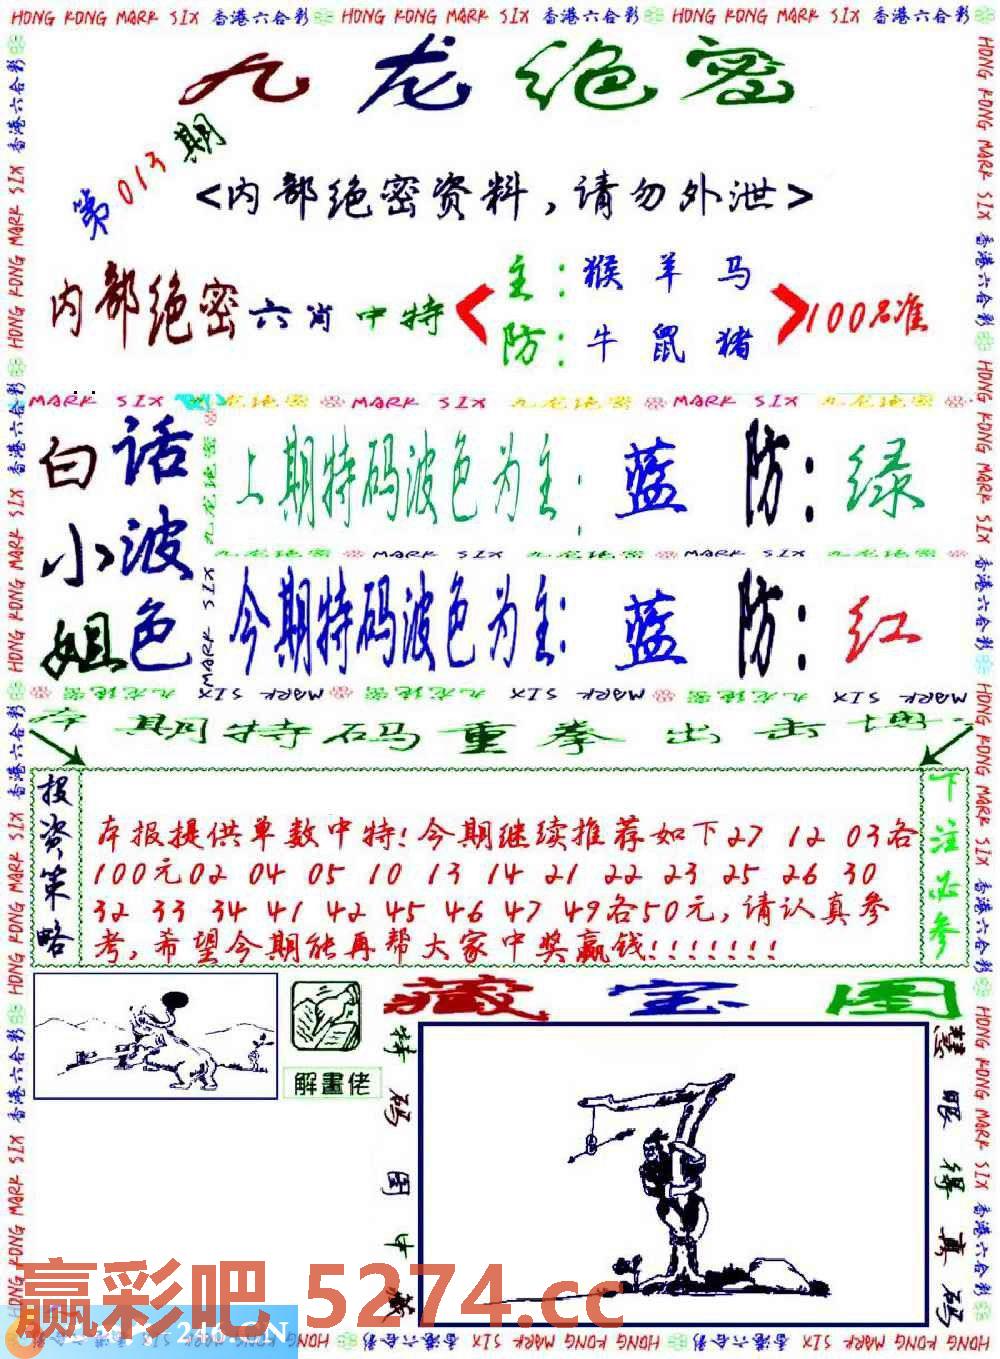 HONG KONG MARK SIX 香港六合彩 HONG KONG MARK SIX 香港六合彩 HONG KONG MARK SIX 香港六合彩
九龙绝密
第013期
<内部绝密资料,请勿外泄>
内部绝密六肖中特
主:猴 羊 马
防:牛 鼠 猪
100%准
MARK SIX 九龙绝密 MARK SIX 九龙绝密 MARK SIX 九龙绝密
白小姐
话波色
上期特码波色为主: 蓝 防: 绿
九龙绝密 MARK SIX 九龙绝密 MARK SIX 九龙绝密
今期特码波色为主: 蓝 防: 红
本期特码重拳出击
投资策略
本报提供单数中特!今期继续推荐如下27 12 03各
100元02 04 05 10 13 14 21 22 23 25 26 30
32 33 34 41 42 45 46 47 49各50元,请认真参
考,希望今期能再帮大家中奖赢钱!!!!!!!
下注必参
藏宝图
解畫佬
特码图中藏
慧眼得真码
赢彩吧 5274.cc
246.CN